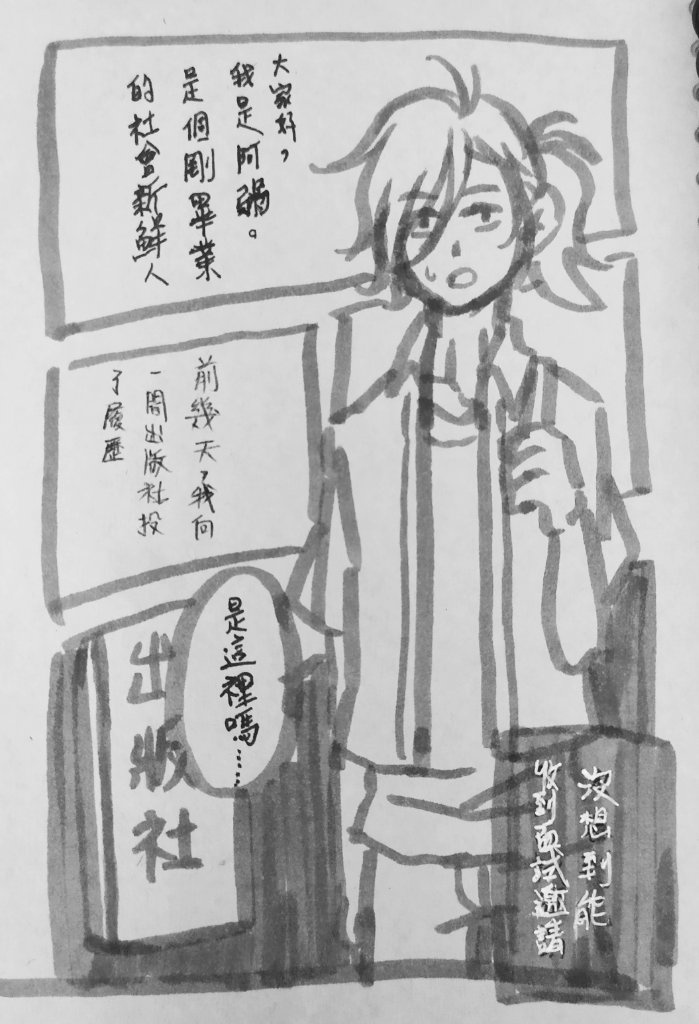 大家好，
我是阿禍。
是個剛畢業
的社會新鮮人
前幾天，我向
一間出版社投
了履歷
沒想到能
收到面試邀請
出版社
是這裡嗎……